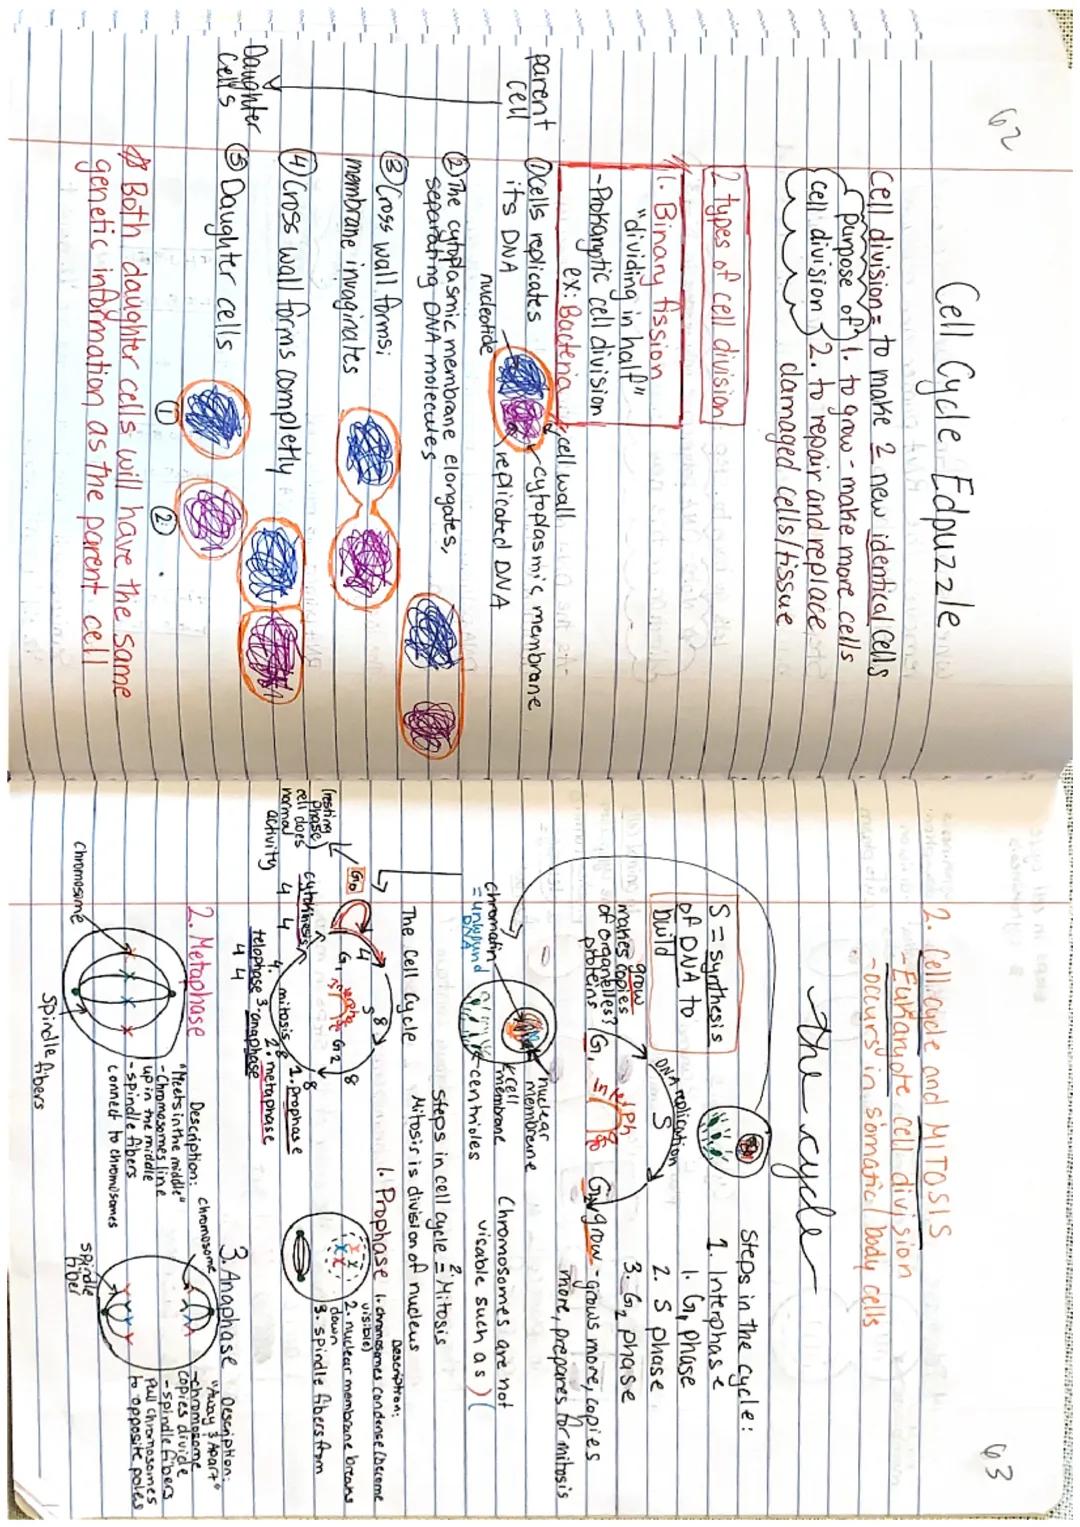 62
Cell Cycle Edpuzzle
Cell division = to make 2 new identical cells
purpose of
cell division
1. to grow - make more cells
2. to repair and replace
damaged cells/tissue
2 types of cell division:
1. Binary fission
"dividing in half"
- Prokaryotic cell division
ex: Bacteria
parent
cell
① Cells replicates
its DNA
nucleotide
cell wall
cytoplasmic membrane
replicated DNA
② The cytplasmic membrane elongates,
separating DNA molecules
③ Cross wall forms;
membrane invaginates
④ Cross wall forms completly
Daughter
Cells
⑤ Daughter cells
①
②
Both daughter cells will have the same
genetic information as the parent cell
63
2. Cell cycle and MITOSIS
- Eukaryote cell division
- occurs in somatic/body cells
The cycle
S = synthesis
of DNA to
build
Steps in the cycle:
1. Interphase
1. G1 phase
2. S phase
3. G2 phase
DNA replication
S
grow
makes copies
of organelles?
proteins
G1
Interph
G2
grow - grows more, copies
more, prepares for mitosis
chromatin
= unwound
DNA
nuclear
membrane
cell
membrane
centrioles
Chromosomes are not
visable such as
Steps in cell cycle = 2. Mitosis
Mitosis is division of nucleus
The Cell Cycle
G0
(resting
phase)
cell does
normal
activity
4
G1
S
8
G2
8
8
mitosis
cytokinesis
4 4
4. telophase
4 4
3. anaphase
2. metaphase
1. prophase
1. Prophase
Description:
1. chromosomes condense (become
visible)
2. nuclear membrane breaks
down
3. spindle fibers from
2. Metaphase
chromosome
spindle fibers
Description:
"Meets in the middle"
- Chromosomes line
up in the middle
- spindle fibers
connect to chromosomes
3. Anaphase
chromosome
spindle
fiber
Description:
"Away & Apart"
- chromosome
copies divide
- spindle fibers
pull chromosomes
to opposite poles